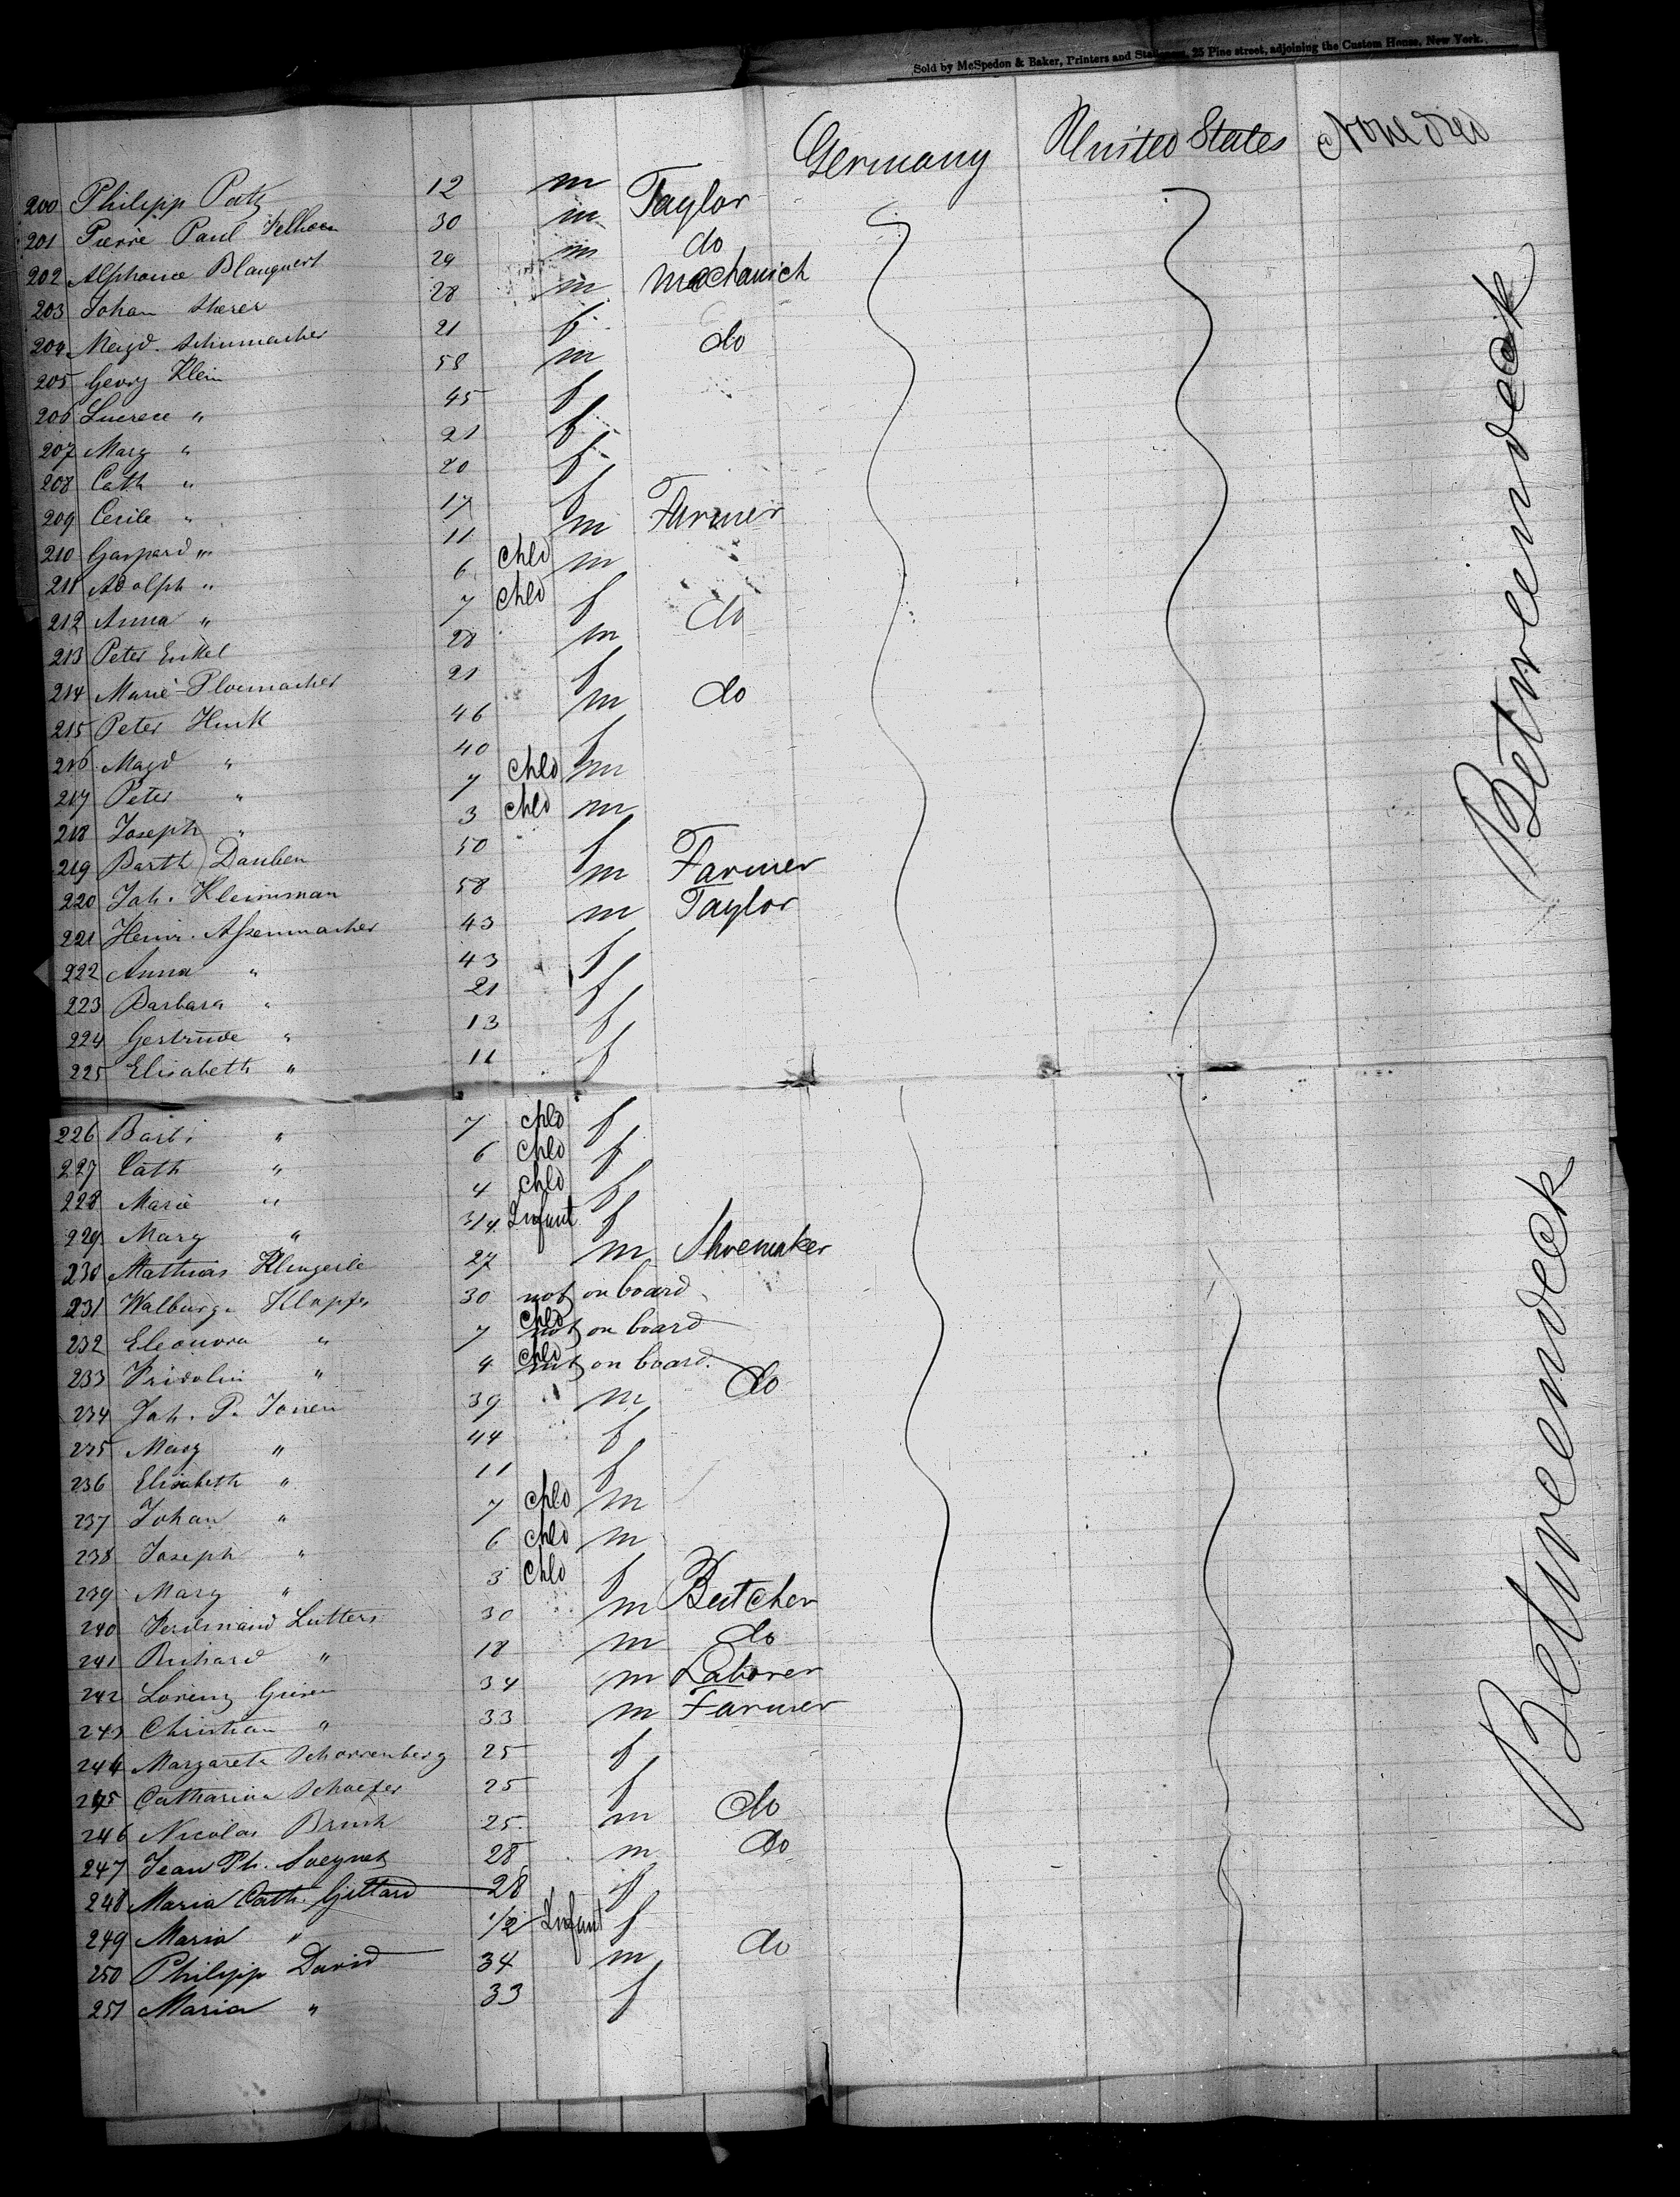 Sold by McSpedon & Baker, Printers and Stationers, 25 Pine street, adjoining the Custom House, New York.
Germany United States None died
200 Philipp 12 m
201 Pierre Paul 30 m Taylor
202 Alphonce Blanquert 29 m do
203 Johan Sherer 28 m Mechanich
204 Magd. Schumacher 21 f
205 Georg Klein 58 m do
206 Lucrece " 45 f
207 Marg " 21 f
208 Cath " 20 f
209 Cecile " 17 f
210 Gaspard " 11 m Farmer
211 Adolph " 6 Chld m
212 Anna " 7 Chld f
213 Peter Enkel 28 m do
214 Marie Ploemacher 21 f
215 Peter Hurk 46 m do
216 Magd " 40 f
217 Peter " 7 Chld m
218 Joseph " 3 Chld m
219 Barth Dauben 50 f
220 Joh. Kleinman 58 m Farmer
221 Heinr. Assenmacher 43 m Taylor
222 Anna " 43 f
223 Barbara " 21 f
224 Gertrude " 13 f
225 Elisabeth " 11 f
226 Barb. " 7 Chld f
227 Cath " 6 Chld f
228 Marie " 4 Chld f
229 Marg " 3/4 Infant f
230 Mathias Klingerle 27 m Shoemaker
231 Walburga Klopfer 30 not on board
232 Eleonora " 7 Chld not on board
233 Fridolin " 4 Chld not on board
234 Joh. P. 39 m do
235 Marg " 44 f
236 Elisabeth " 11 f
237 Johan " 7 Chld m
238 Joseph " 6 Chld m
239 Marg " 3 Chld f
240 Ferdinand Lutters 30 m Butcher
241 Richard " 18 m do
242 Lorenz 34 m Laborer
243 Christian " 33 m Farmer
244 Margareth Schorrenberg 25 f
245 Catharina Schaefer 25 f
246 Nicolas 25 m do
247 Jean Ph. 28 m do
248 Maria Cath. Gillard 28 f
249 Maria " 1/2 Infant f
250 Philipp David 34 m do
251 Maria " 33 f
Betweendeck
Betweendeck